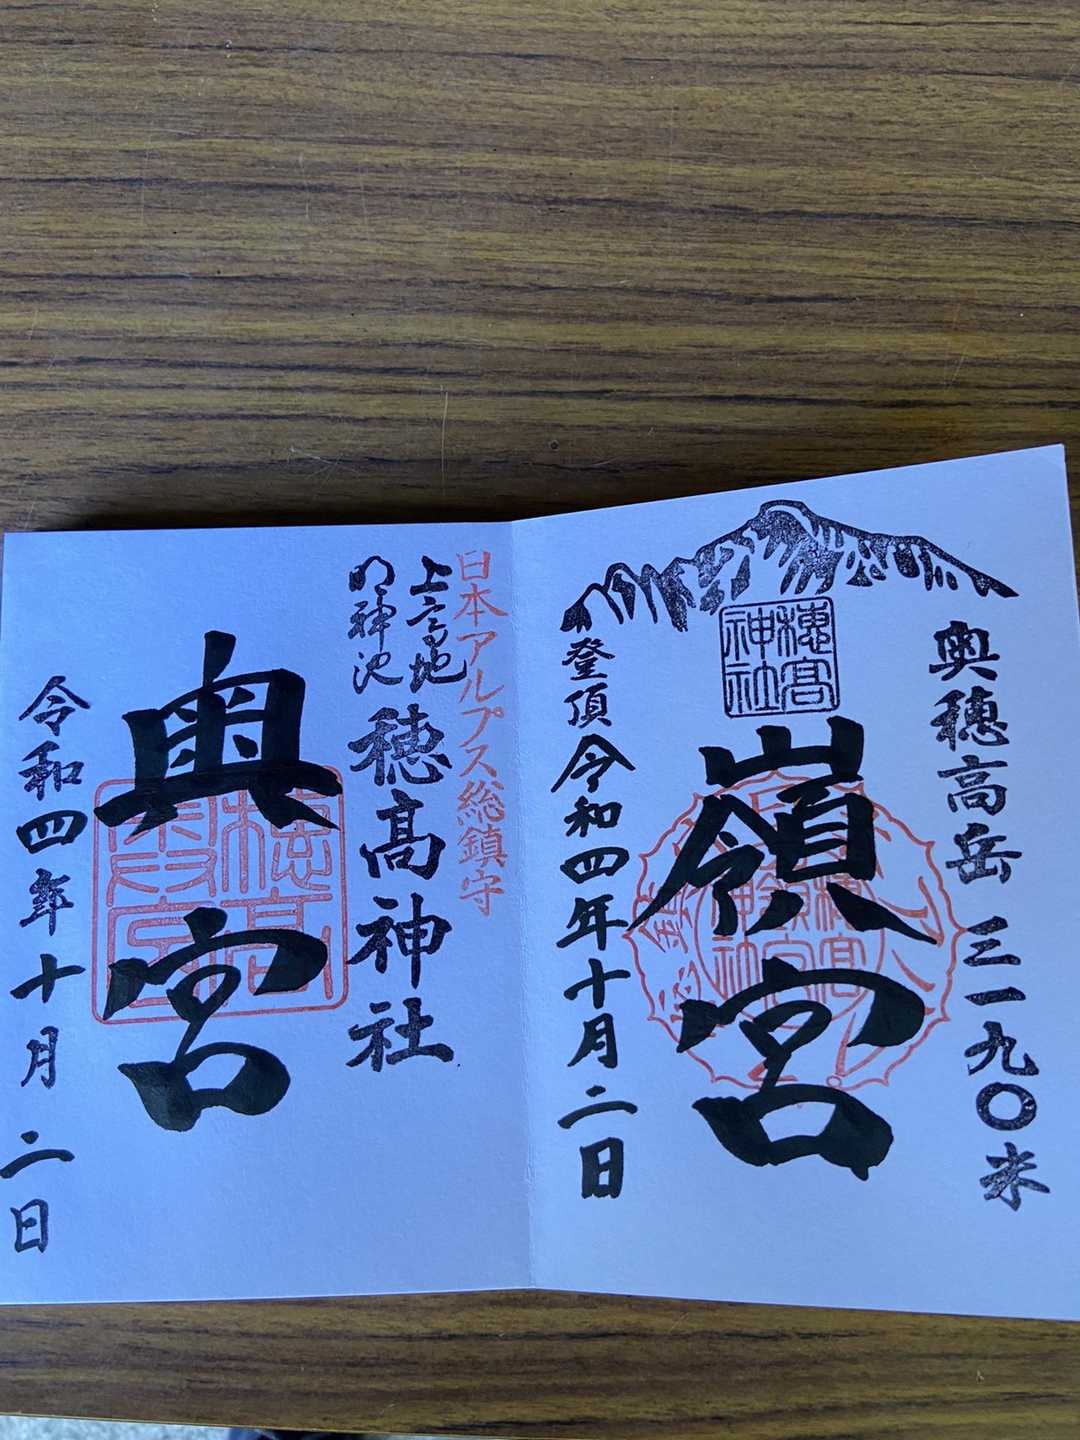 奥穂高岳 三一九〇米
穂高
神社
嶺宮
登頂 令和四年十月二日
日本アルプス総鎮守
上高地
明神池
穂髙神社
奥宮
令和四年十月 二日